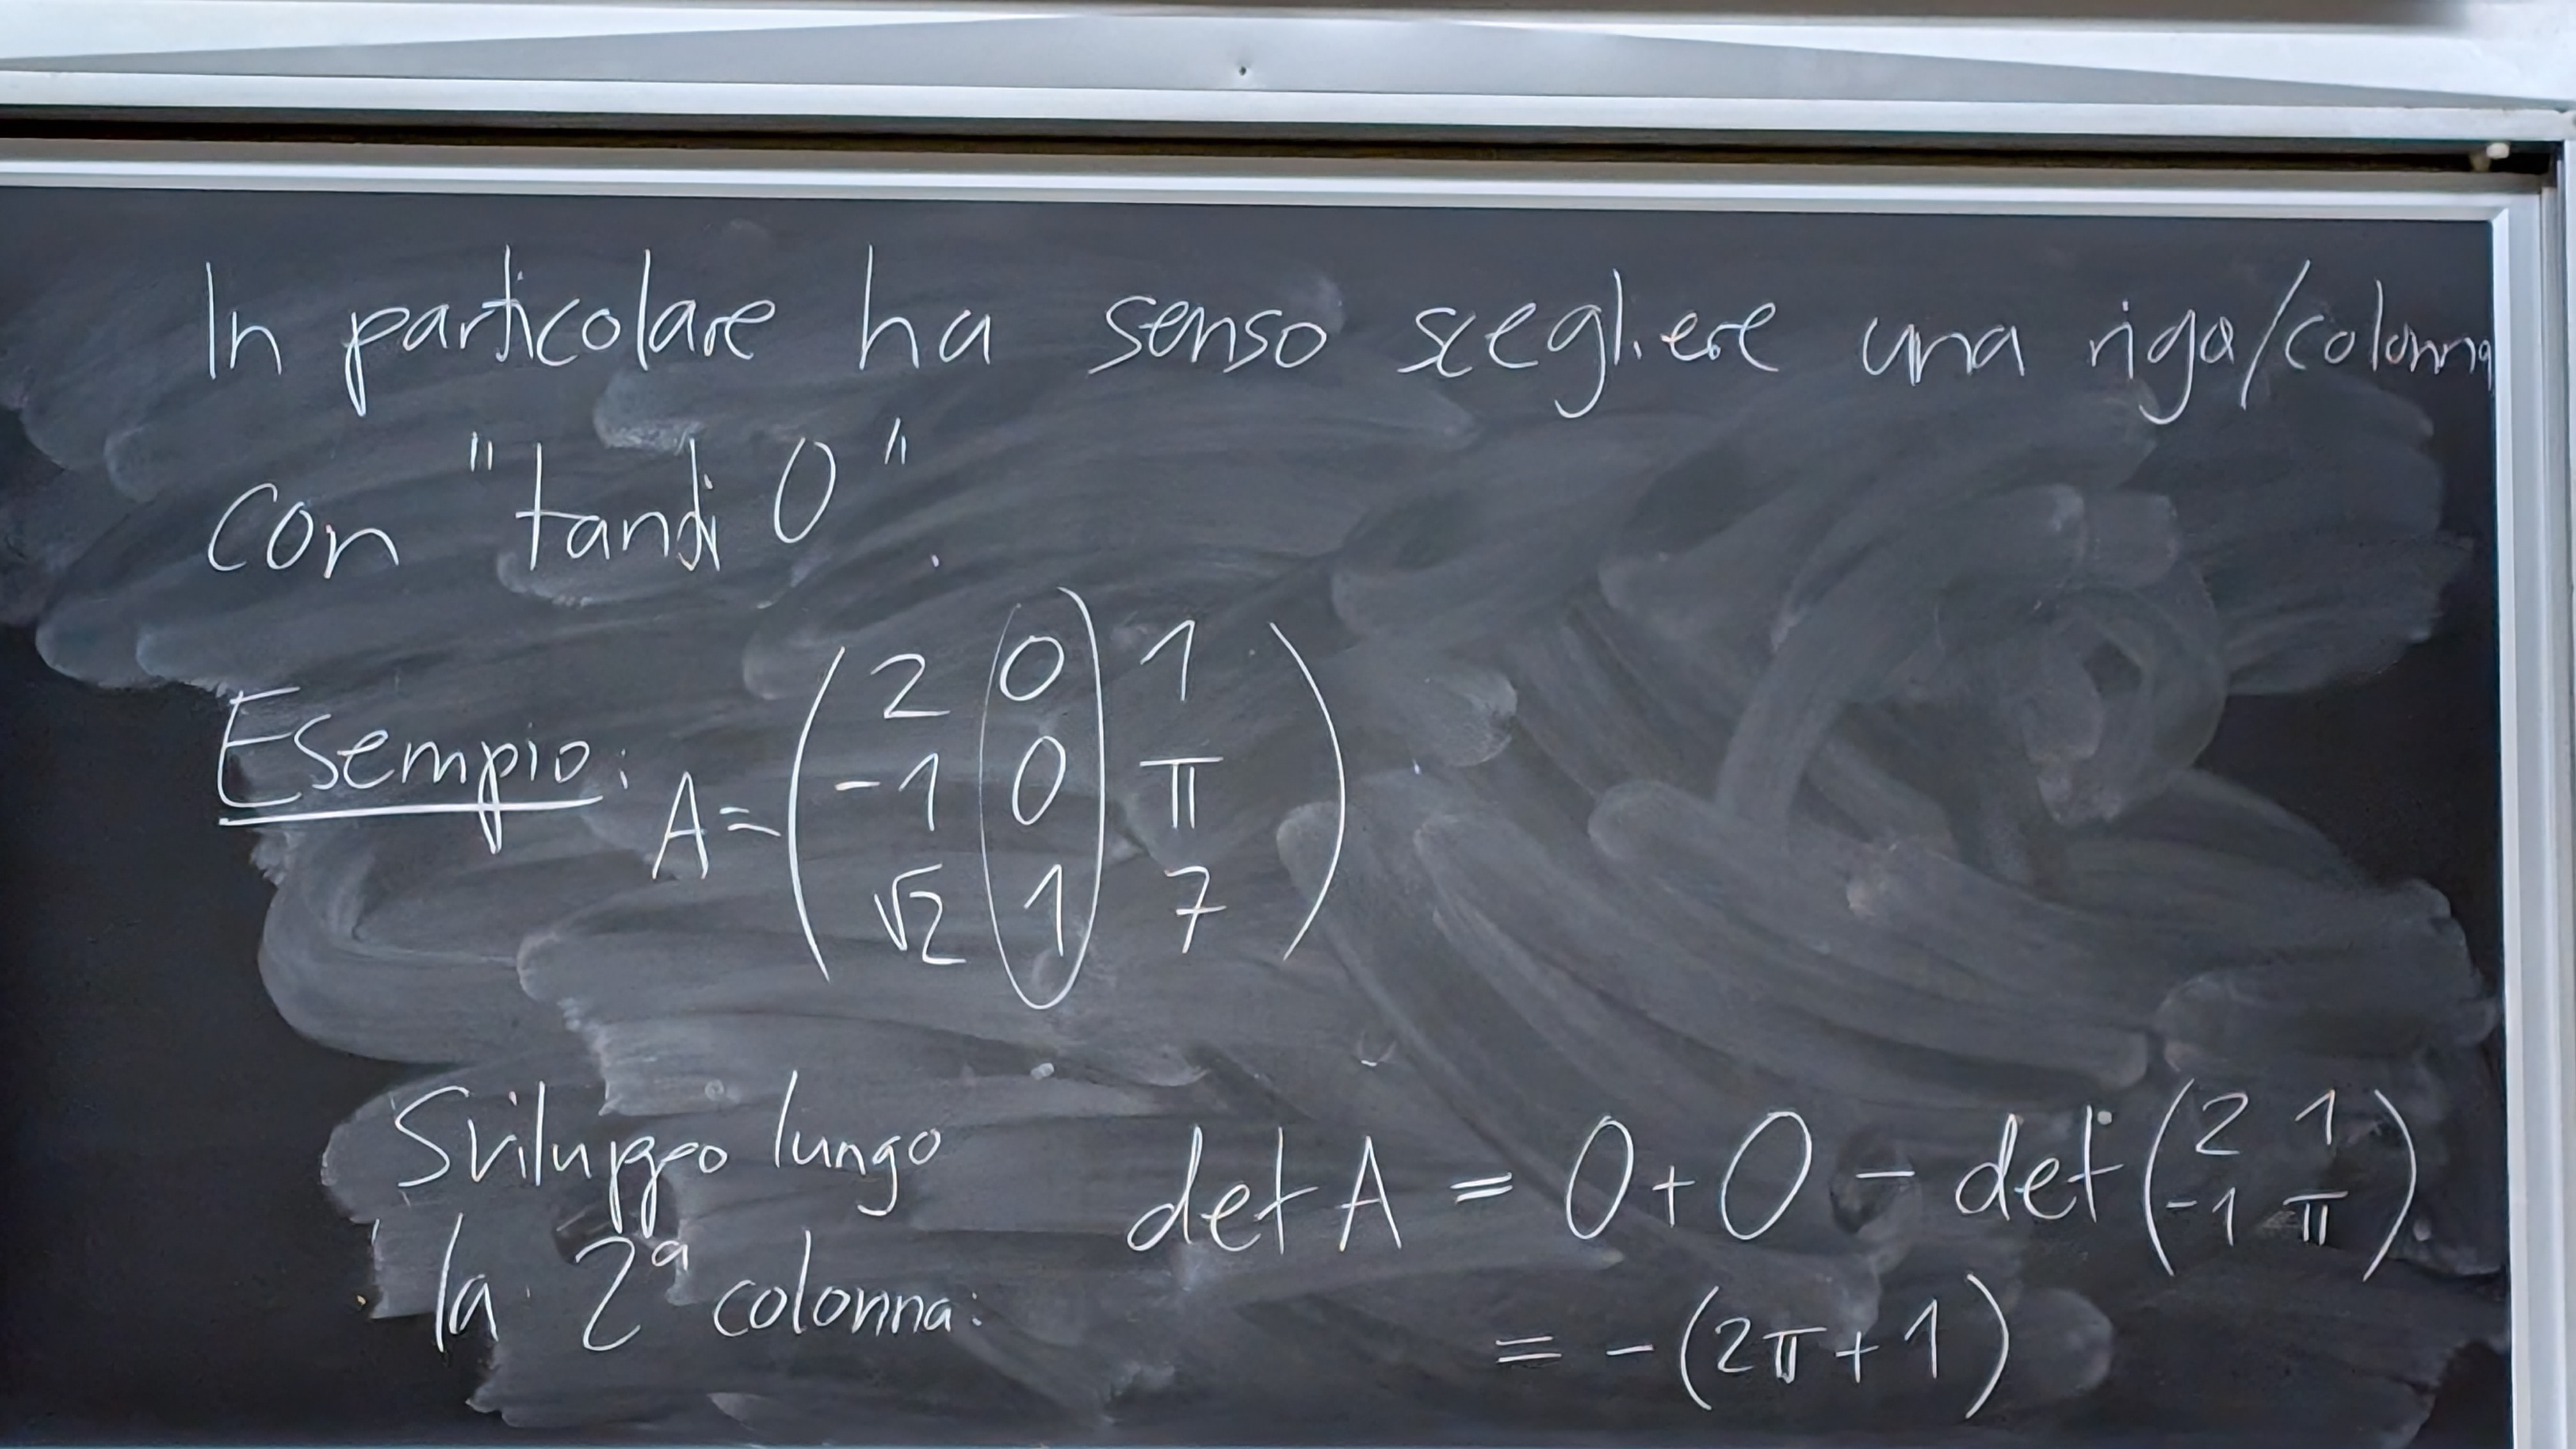 In particolare ha senso scegliere una riga/colonna
con "tandi 0".
Esempio: A = ( 2 0 1
-1 0 π
√2 1 7 )
Sviluppo lungo
la 2ª colonna:
det A = 0 + 0 - det ( 2 1
-1 π ).
= - (2π + 1)